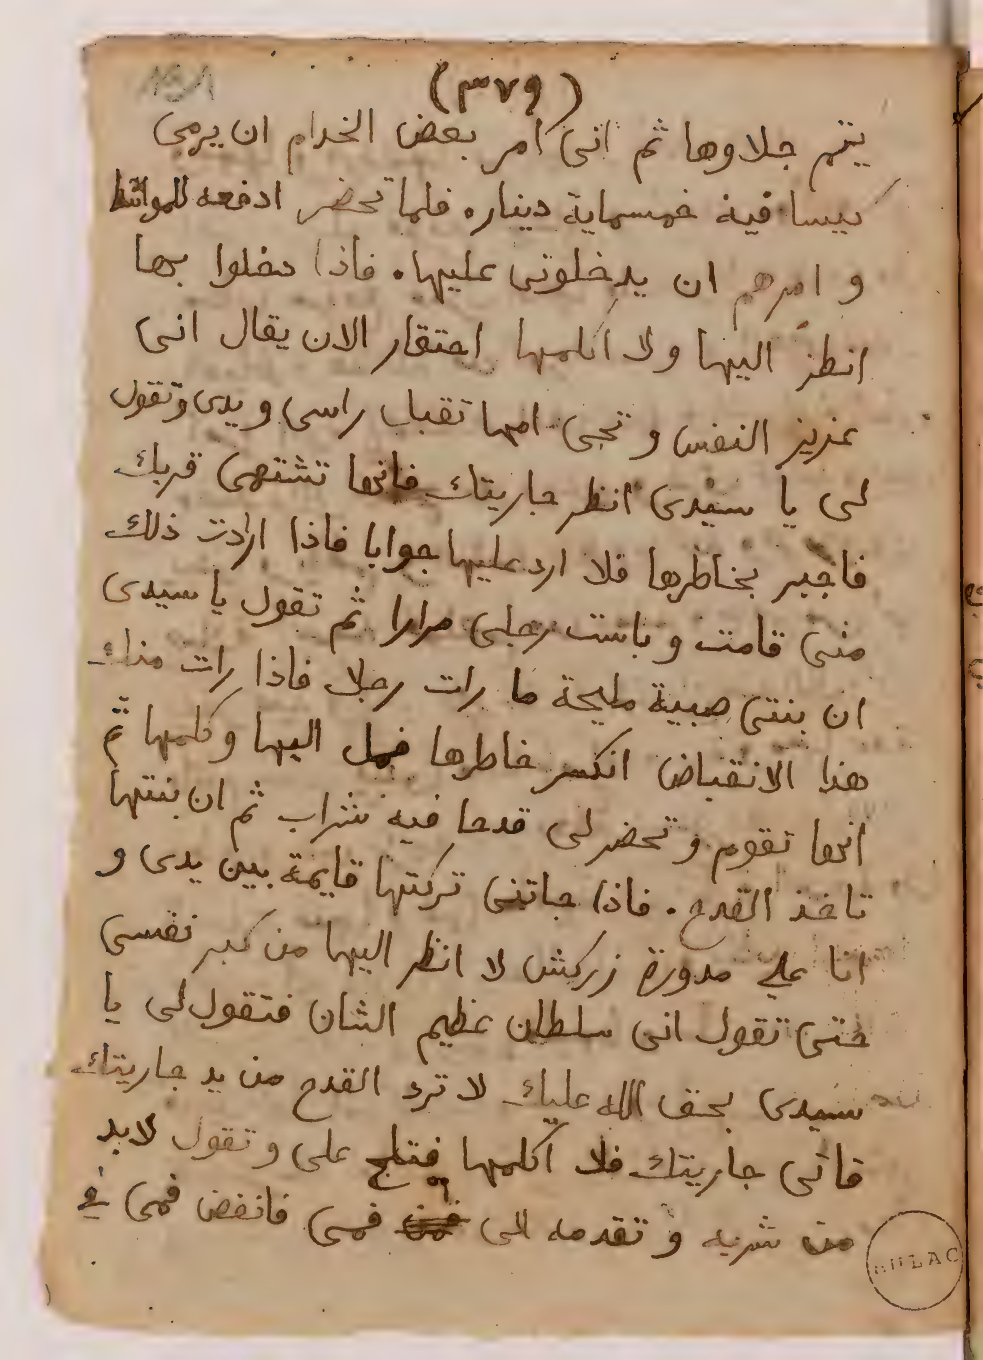 (٣٧٩)
يتم جلاوها ثم انى امر بعض الخدام ان يرمى
كيسا فيه خمسماية دينار. فلما تحضر ادفعه للمواشط
و امرهم ان يدخلونى عليها. فاذا دخلوا بها
انظر اليها ولا اكلمها احتقار الان يقال انى
عزيز النفس و تجى امها تقبل راسى و يدى وتقول
لى يا سيدى انظر جاريتك فانها تشتهى قربك
فاجبر بخاطرها فلا ارد عليها جوابا فاذا ارادت ذلك
منى قامت و باست رجلى مرارا ثم تقول يا سيدى
ان بنتى صبية مليحة ما رات رجلا فاذا رات منك
هذا الانقباض انكسر خاطرها فمل اليها وكلمها ثم
انها تقوم و تحضر لى قدحا فيه شراب ثم ان بنتها
تاخذ القدح. فاذا جاتنى تركتها قايمة بين يدى و
انا على مدورة زركش لا انظر اليها من كبر نفسى
حتى تقول انى سلطان عظيم الشان فتقول لى يا
سيدى بحق الله عليك لا ترد القدح من يد جاريتك
فانى جاريتك فلا اكلمها فتلح على و تقول لابد
من شربه و تقدمه الى فمى فانفض فمى فى
BULAC